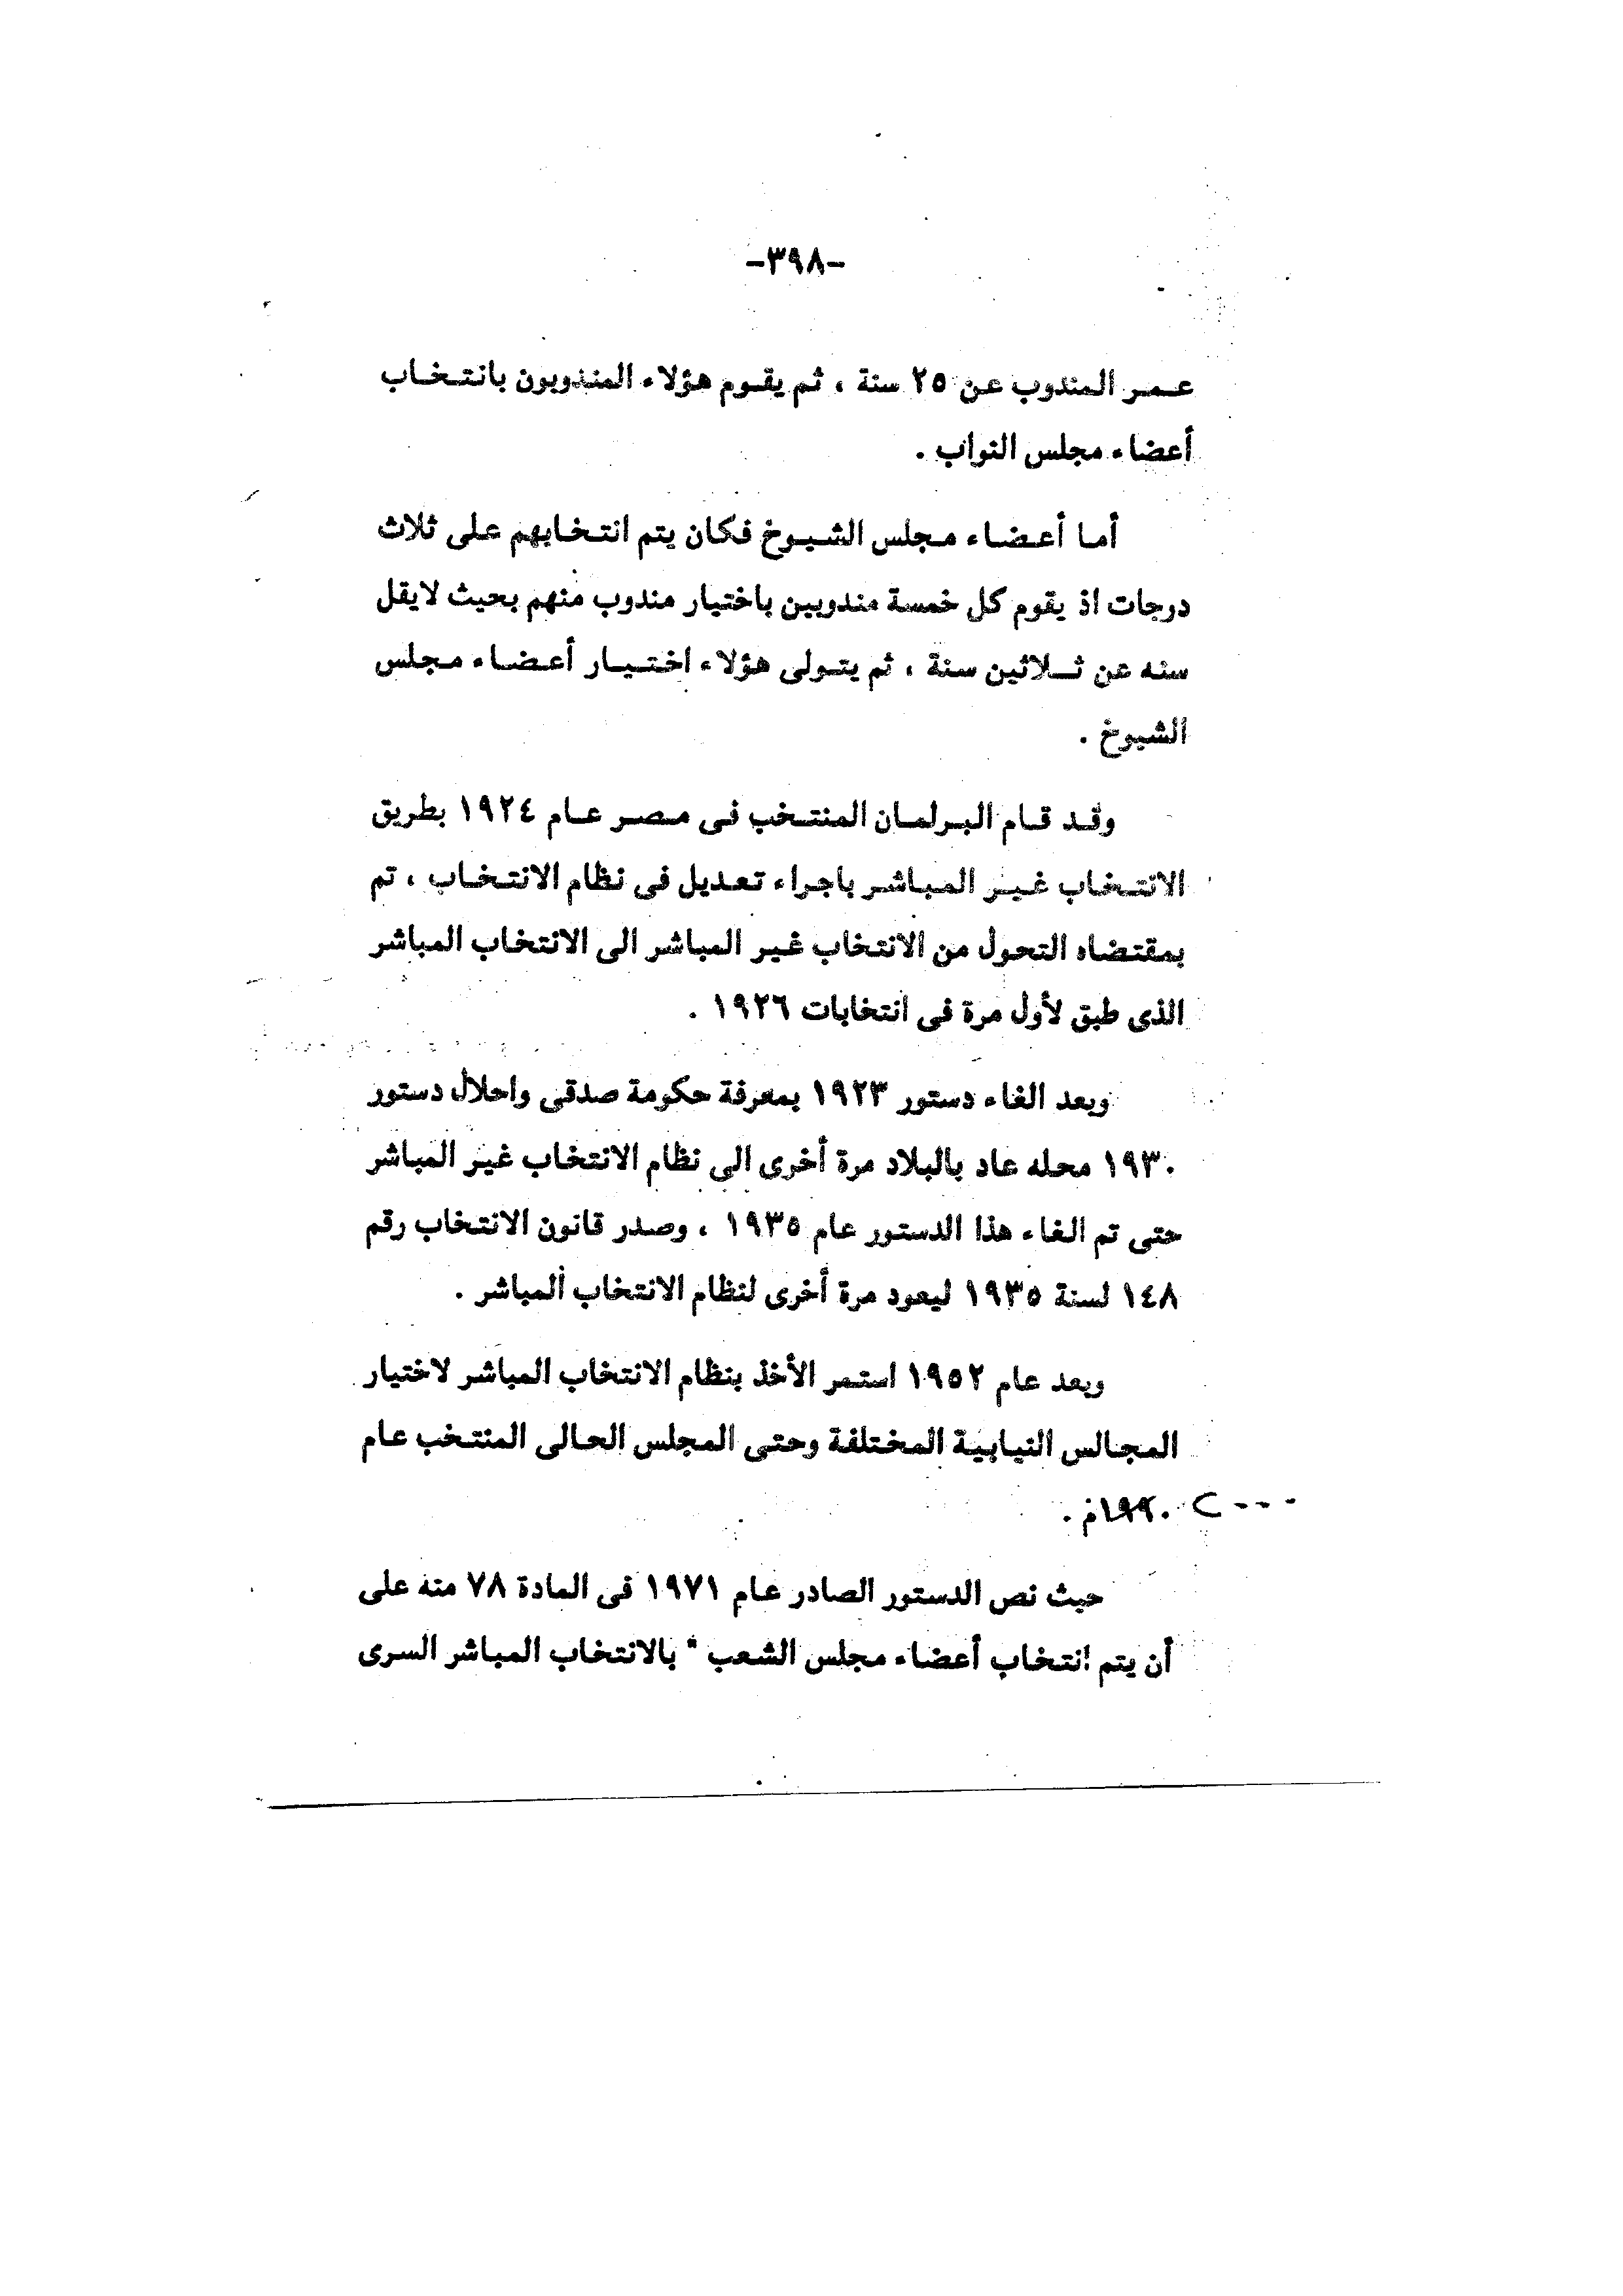 -٣٩٨-
عمر المندوب عن ٢٥ سنة ، ثم يقوم هؤلاء المندوبون بانتخاب
أعضاء مجلس النواب .
أما أعضاء مجلس الشيوخ فكان يتم انتخابهم على ثلاث
درجات اذ يقوم كل خمسة مندوبين باختيار مندوب منهم بحيث لايقل
سنه عن ثلاثين سنة ، ثم يتولى هؤلاء اختيار أعضاء مجلس
الشيوخ .
وقد قام البرلمان المنتخب فى مصر عام ١٩٢٤ بطريق
الانتخاب غير المباشر باجراء تعديل فى نظام الانتخاب ، تم
بمقتضاه التحول من الانتخاب غير المباشر الى الانتخاب المباشر
الذى طبق لأول مرة فى انتخابات ١٩٢٦ .
وبعد الغاء دستور ١٩٢٣ بمعرفة حكومة صدقى واحلال دستور
١٩٣٠ محله عاد بالبلاد مرة أخرى الى نظام الانتخاب غير المباشر
حتى تم الغاء هذا الدستور عام ١٩٣٥ ، وصدر قانون الانتخاب رقم
١٤٨ لسنة ١٩٣٥ ليعود مرة أخرى لنظام الانتخاب المباشر .
وبعد عام ١٩٥٢ استمر الأخذ بنظام الانتخاب المباشر لاختيار
المجالس النيابية المختلفة وحتى المجلس الحالى المنتخب عام
٢٠٠٠ ١٩٩٠م .
حيث نص الدستور الصادر عام ١٩٧١ فى المادة ٧٨ منه على
أن يتم انتخاب أعضاء مجلس الشعب " بالانتخاب المباشر السرى